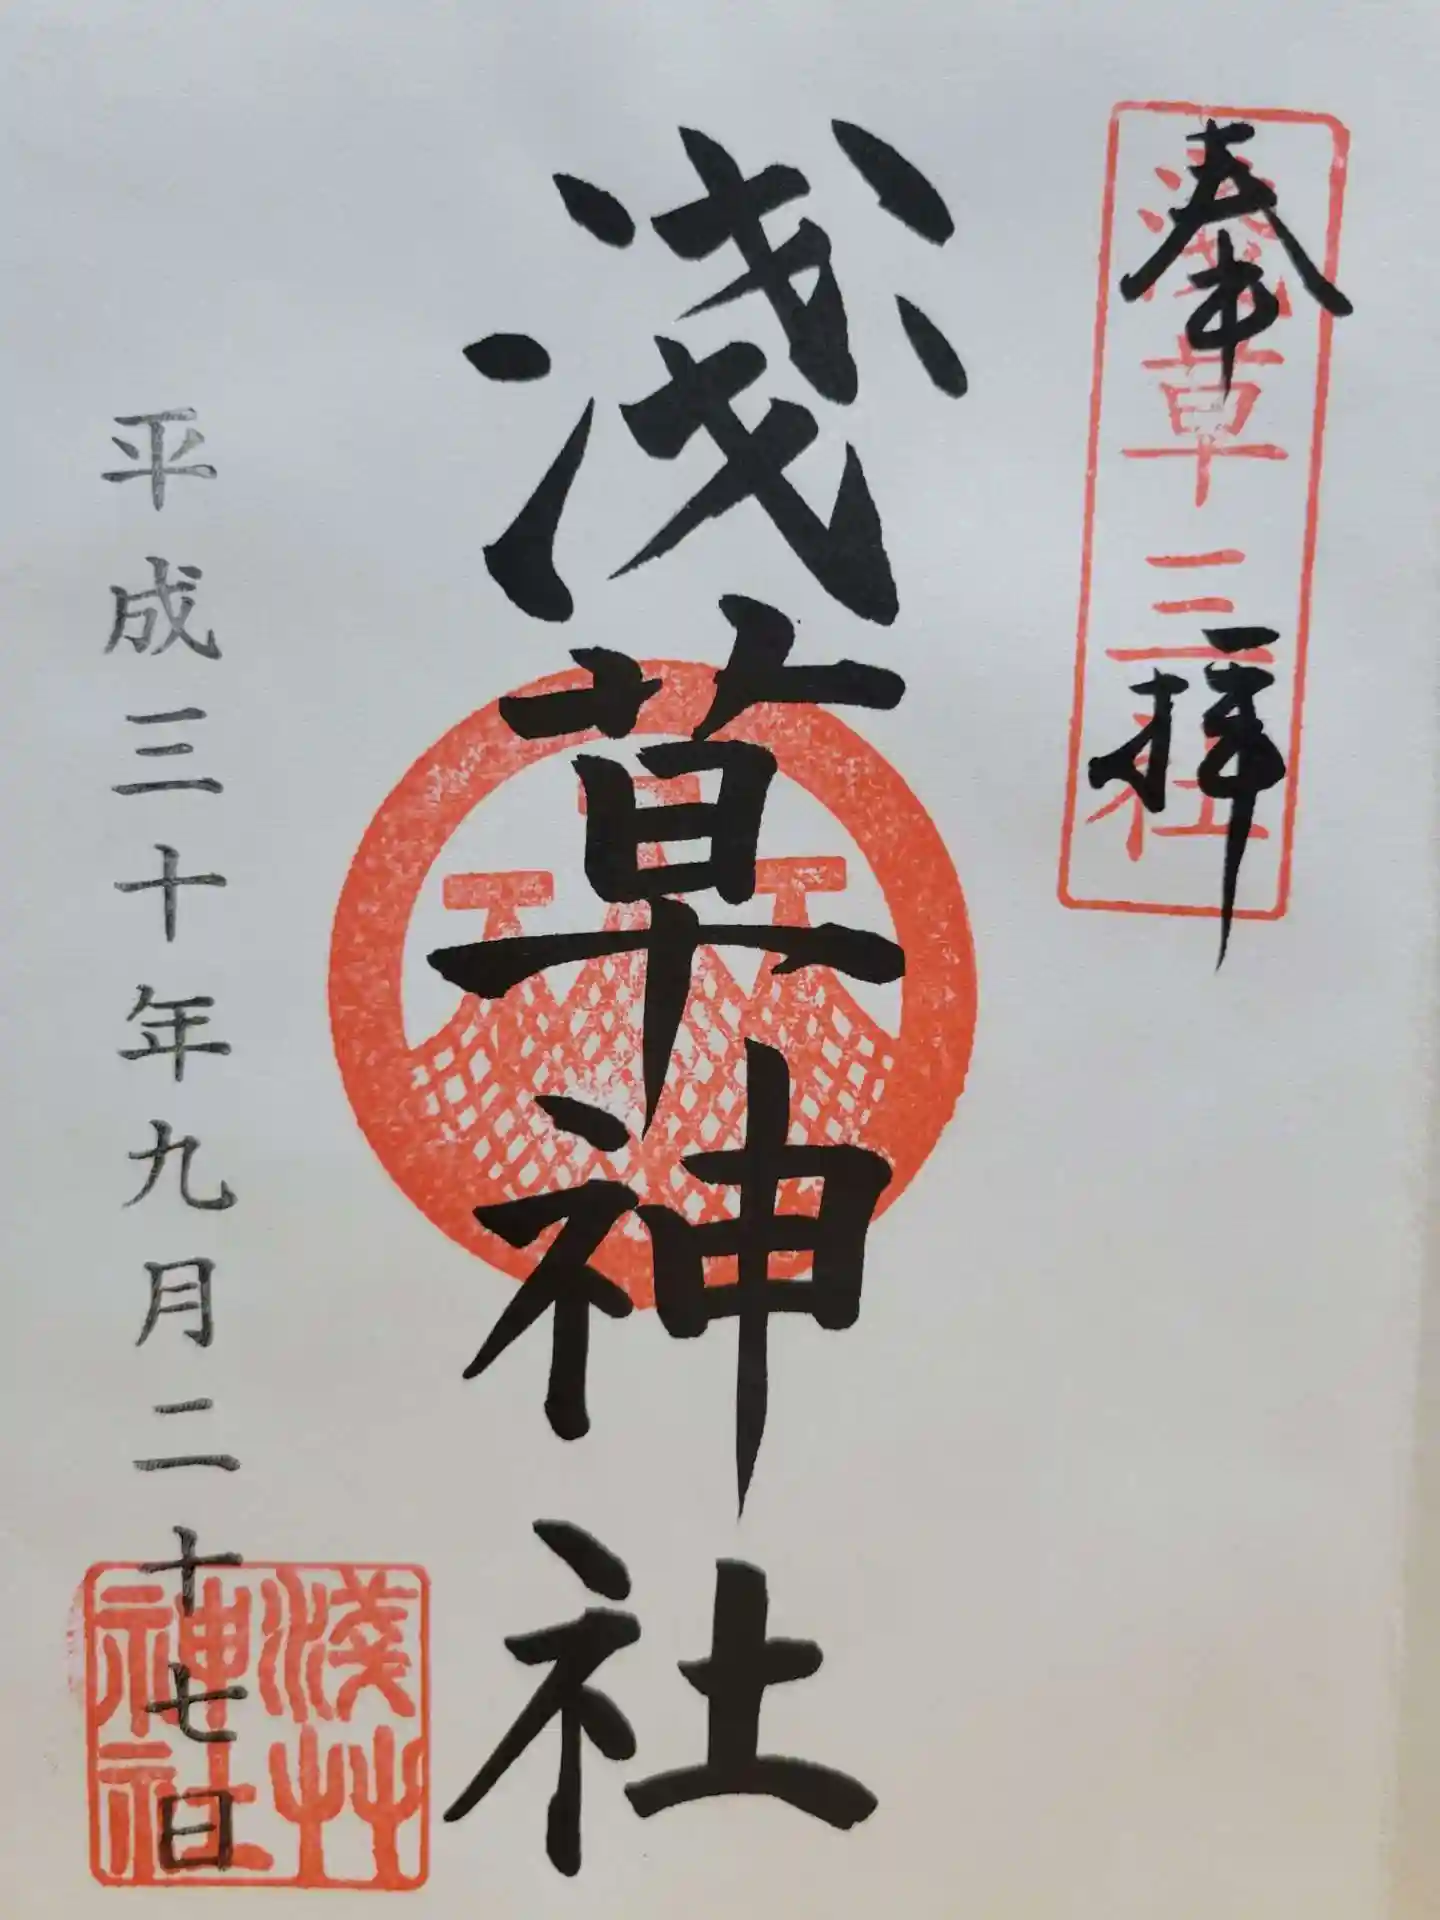 奉拝
淺草三社
淺草神社
平成三十年九月二十七日
淺艸
神社